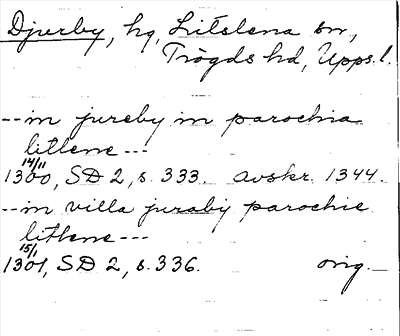 Djurby, hg, Litslena sn,
Trögds hd, Upps. l.
--in jureby in parochia
litlene---
14/11
1300, SD 2, s. 333. avskr. 1344.
--in villa juraby parochie
litlene---
15/1
1301, SD 2, s. 336. orig.